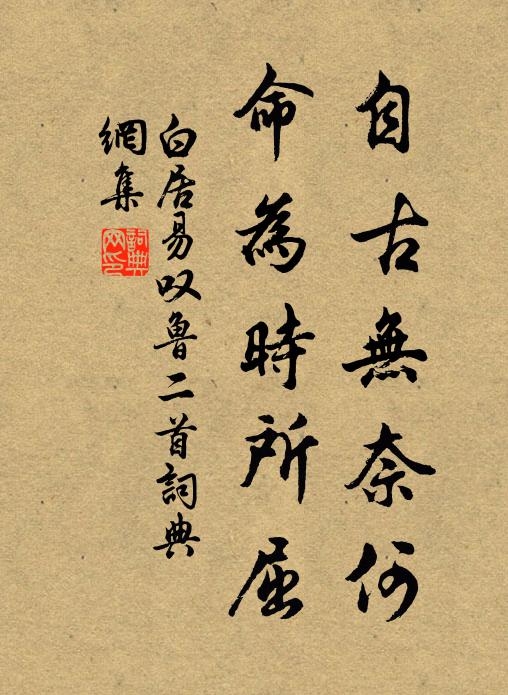 自古無奈何
命為時所屈
白居易叹魯二首詞典
網集
詞典
网印